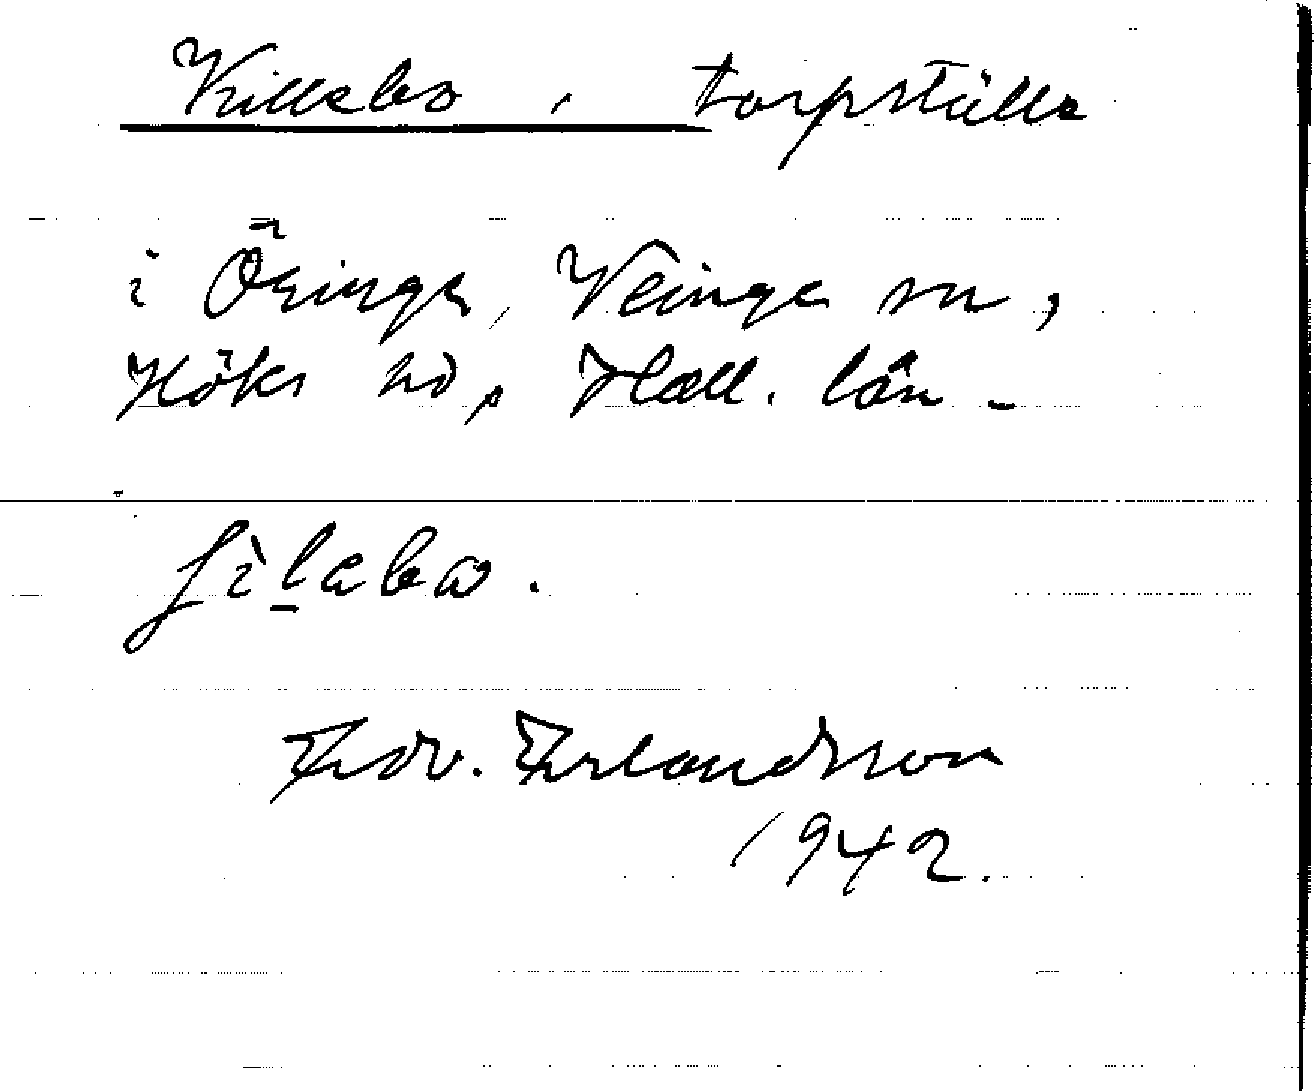 Killebo, torpställe
i Öringe, Veinge sn,
Höks hd, Hall. län -
Edv. Erlandsson
1942.